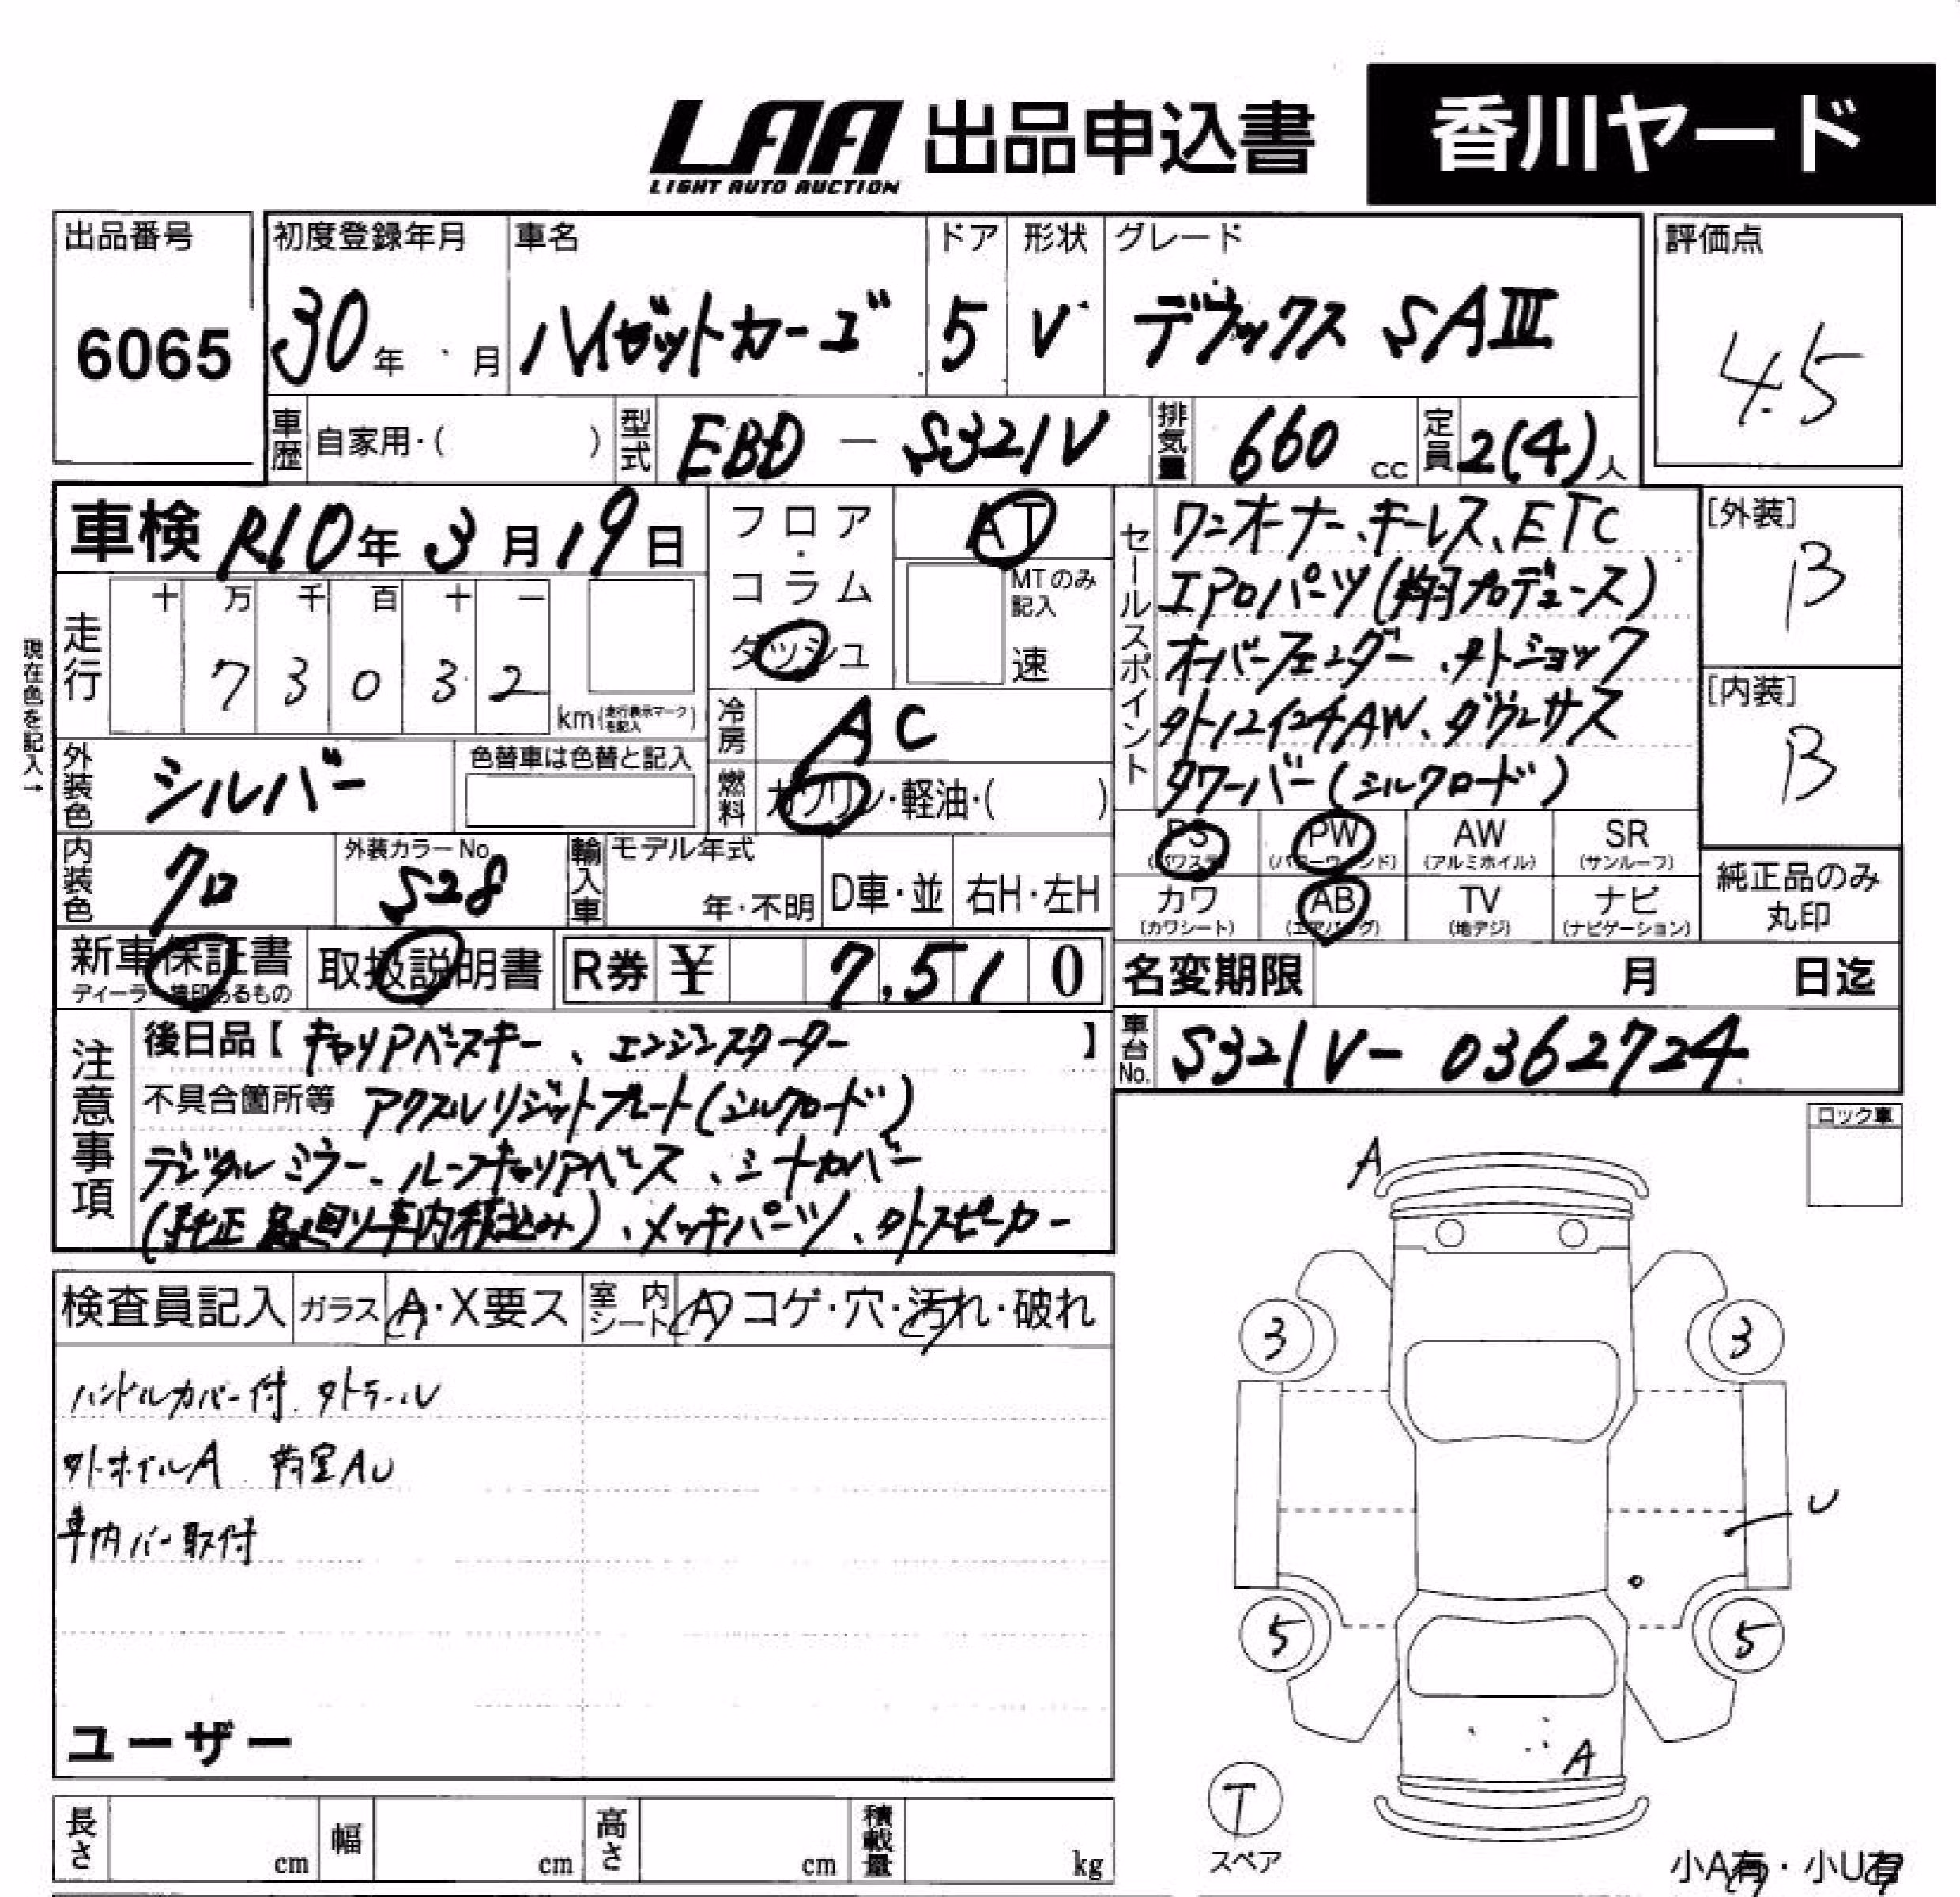 LAA 出品申込書 香川ヤード
LIGHT AUTO AUCTION
出品番号 初度登録年月 車名 ドア 形状 グレード 評価点
6065 30年 月 ハイゼットカーゴ 5 V デラックス SAⅢ 4.5
車歴 自家用・( ) 型式 EBD - S321V 排気量 660 cc 定員 2(4)人
車検 R10年3月19日
フロア・コラム・ダッシュ AT
MTのみ記入 速
走行 十 万 千 百 十 一
7 3 0 3 2
km(走行表示マークを記入)
現在色を記入→
外装色 シルバー 色替車は色替と記入
冷房 AC
燃料 ガソリン・軽油・( )
内装色 クロ 外装カラーNo. S28 輸入車 モデル年式 年・不明 D車・並 右H・左H
新車保証書 取扱説明書 R券 ¥ 7,510
ディーラー捺印あるもの
セールスポイント
ワンオーナー、キーレス、ETC
エアロパーツ(翔プロデュース)
オーバーフェンダー、外ショック
外12インチAW、ダウンサス
タワーバー(シルクロード)
[外装] B
[内装] B
PS PW AW SR
(パワステ) (パワーウィンド) (アルミホイル) (サンルーフ)
カワ AB TV ナビ
(カワシート) (エアバッグ) (地デジ) (ナビゲーション)
純正品のみ丸印
名変期限 月 日迄
車台No. S321V- 0362724
注意事項
後日品【キャリアベースキー、エンジンスターター】
不具合箇所等 アクスルリジットプレート(シルクロード)
デジタルミラー、ルーフキャリアベース、シートカバー
(純正 足回り車内積込み)、メッキパーツ、外スピーカー
ロック車
検査員記入 ガラス A・X要ス 室内シート A コゲ・穴・汚れ・破れ
ハンドルカバー付 外ラール
外ホイルA 荷室AU
車内バー取付
ユーザー
A
3 3
U
5 5
A
T
スペア
小A有・小U有
長さ cm 幅 cm 高さ cm 積載量 kg